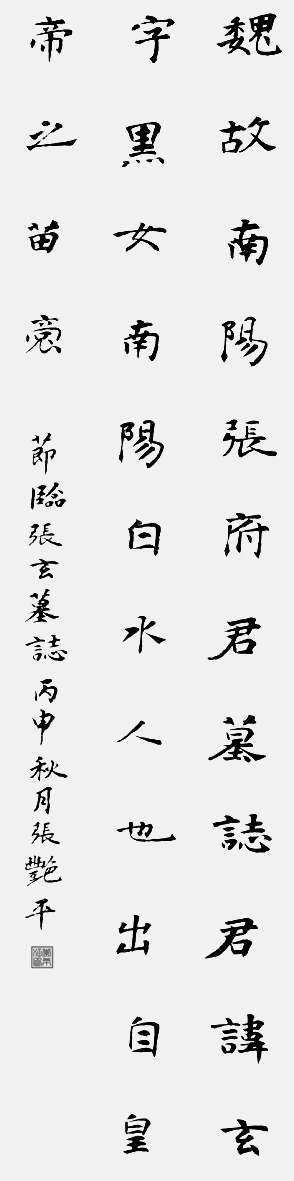 魏故南陽張府君墓誌君諱玄
字黑女南陽白水人也出自皇
帝之苗裔
節臨張玄墓誌丙申秋月張艷平